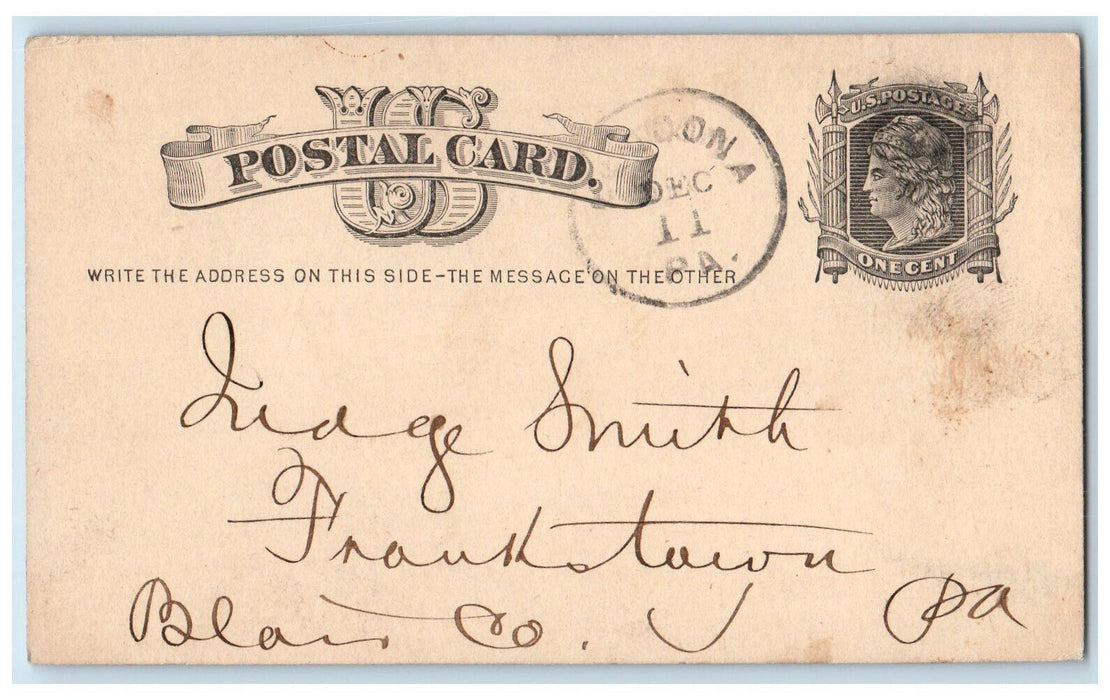 US
POSTAL CARD.
U.S. POSTAGE
ONE CENT
DEC
11
PA.
WRITE THE ADDRESS ON THIS SIDE-THE MESSAGE ON THE OTHER
Judge Smith
Frankstown
Blair Co. Pa